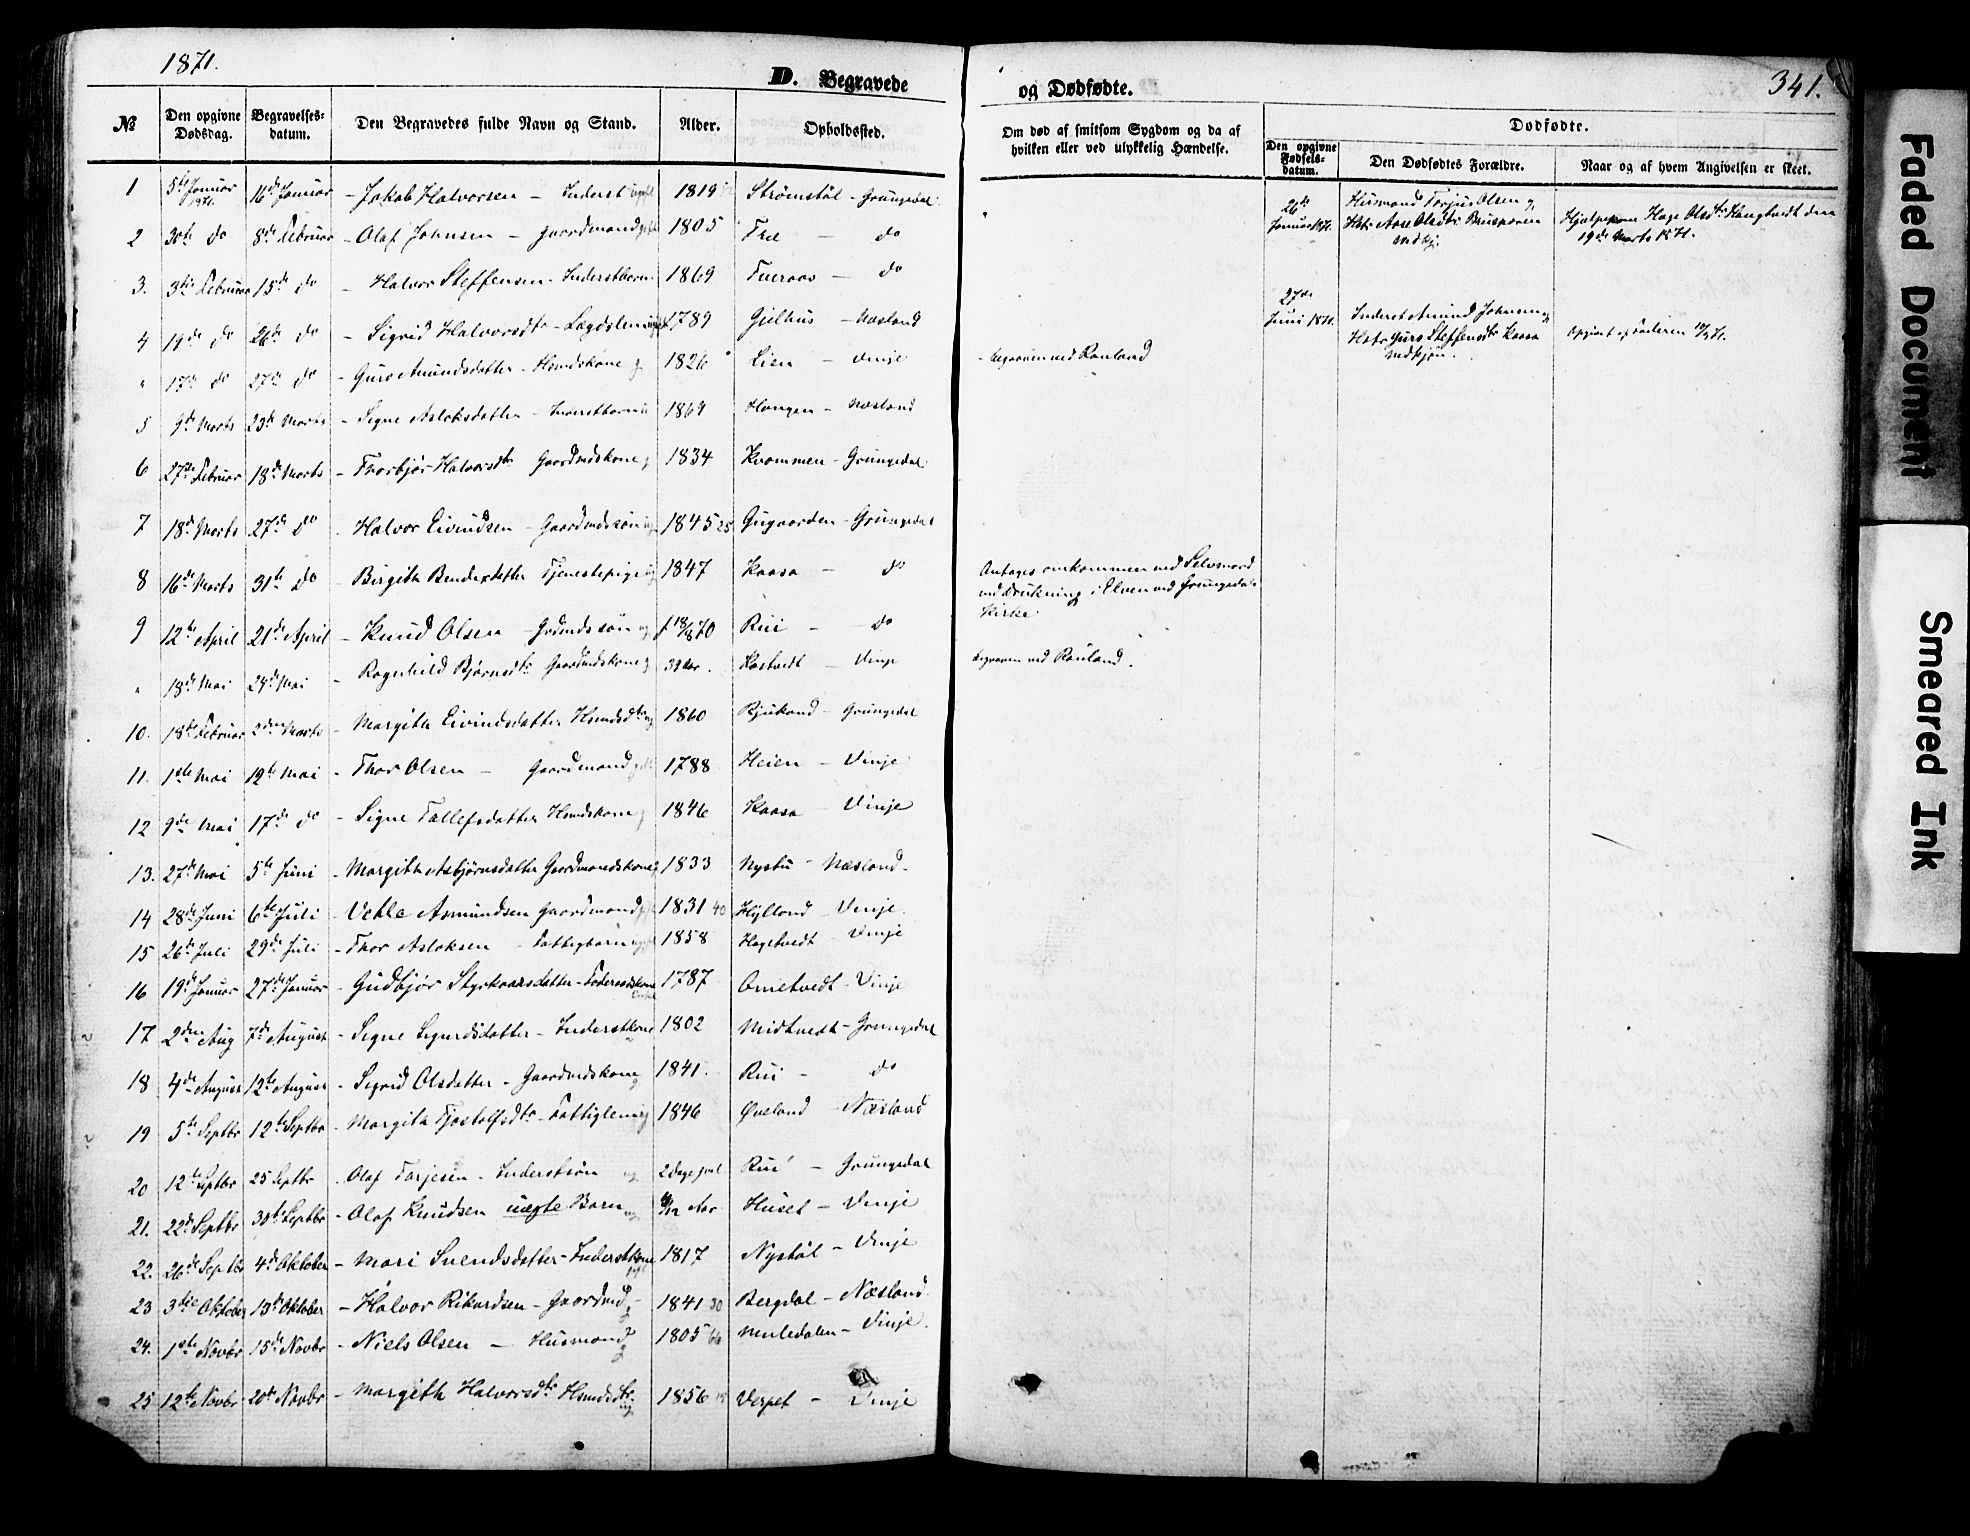 1871.
D. Begravede
og Dødfødte.
341.
№
Den opgivne Dødsdag.
Begravelses-datum.
Den Begravedes fulde Navn og Stand.
Alder.
Opholdssted.
Om død af smitsom Sygdom og da af hvilken eller ved ulykkelig Hændelse.
Dødfødte.
Den opgivne Fødsels-datum.
Den Dødfødtes Forældre.
Naar og af hvem Angivelsen er skeet.
1 5te Januar 1871. 16de Januar - Jakob Halvorsen - Inderst 1819 Strømstøl - Grungedal
2 30te do 8de Februar - Olaf Johnsen - Gaardmand 1805 Træ - do
3. 3die Februar 15de do - Halvor Steffensen - Inderstbarn 1869 - do
4 19de do 26de do - Sigrid Halvorsdtr - Lægdslem 1789 Gjelhus - Næsland
" 17de do 27de do - Guro Amundsdatter - Hsmdskone 1826 Lien - Vinje - begraven ved Rauland
5 9de Marts 23de Marts - Signe Aslaksdatter - Inderstbarn 1869 Haugen - Næsland
6 27de Februar 18de Marts - Thorbjør Halvorsdtr Gaardmdskone 1834 Kvammen - Grungedal
7 18de Marts 27de do - Halvor Eivindsen - Gaardmdssøn 1845 25 Gugaarden - Grungedal
8 16de Marts 31te do - Birgith Bendixdatter Tjenestepige 1847 Kaasa - do
Antages omkommen ved Selvmord
ved Drukning i Elven ved Grungedal
Kirke
9 12te April 21de April - Knud Olsen - Grdmdssøn f 18/8 70 Rui - do
" 18de Mai 24de Mai - Ragnhild Bjørnsdtr Gaardmdskone 39 Aar. Kostvedt - Vinje begraven ved Rauland.
10. 18de Februar 2den Marts - Margith Eivindsdatter Hsmdsdtr 1860 Bjukand - Grungedal
11. 1ste Mai 12te Mai - Thor Olsen - Gaardmand 1788 Heien - Vinje
12 9de Mai 17de do - Signe Tallefsdatter Hsmdskone 1846 Kaasa - Vinje
13. 27de Mai 5te Juni - Margith Asbjørnsdatter Gaardmandskone 1833 Nystu - Næsland.
14 28de Juni 6te Juli - Vetle Asmundsen Gaardmand 1831 40 Hylland - Vinje.
15 26de Juli 29de Juli - Thor Aslaksen - Fattigbarn 1858 Hagetvedt - Vinje
16 19de Januar 27de Januar - Gudbjør Styrkaarsdatter - Føderaadskone Enke 1787 Ometvedt - Vinje
17 2den Aug 7de August - Signe Sigurdsdatter - Inderstkone 1802 Midtvedt - Grungedal
18 4de August 12te August - Sigrid Olsdatter - Gaardmdskone 1841. Rui - do
19 5te Septbr 12te Septbr - Margith Tjostolfsdtr - Fattiglem 1846 Øveland - Næsland
20 12te Septbr 25 Septbr - Olaf Torjesen - Inderstsøn 2 Dage gml Rui - Grungedal
21. 22de Septbr 30te Septbr - Olaf Knudsen uægte Barn /12 Aar Huset - Vinje
22. 26de Septbr 4de Oktober - Mari Svendsdatter - Inderstkone 1817 Nystøl - Vinje
23 3die Oktober 13de Oktober - Halvor Rikardsen - Gaardmd 1841 30 Bergdal - Næsland
24. 1ste Novbr 15de Novbr - Niels Olsen - Husmand 1805 66 Muledalen - Vinje.
25 12te Novbr 20de Novbr - Margith Halvorsdtr Hsmdsdtr 1856 15 Verpet - Vinje
26de Januar 1871.
Husmand Torjus Olsen og
Hstr Aase Olsdtr
Hjælpekone Hage Olsdtr Haugtvedt den
19de Marts 1871.
27de Juni 1871.
Inderst Amund Johnsen og
Hstr Guro Steffensdtr Kaasa
Opgivet af Faderen
Faded Document
Smeared Ink